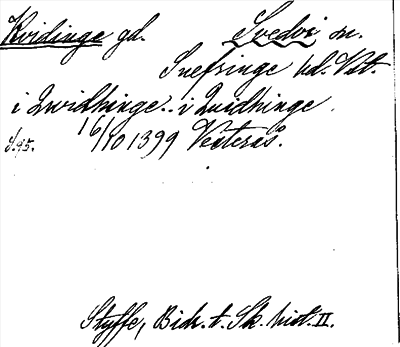 Kvidinge gd. Svedvi sn.
Snefringe hd. Vstm.
i Qwidhinge. i Quidhinge.
16/10 1399 Vesterås.
S. 95.
Styffe, Bidr. t. Sk. hist. II.